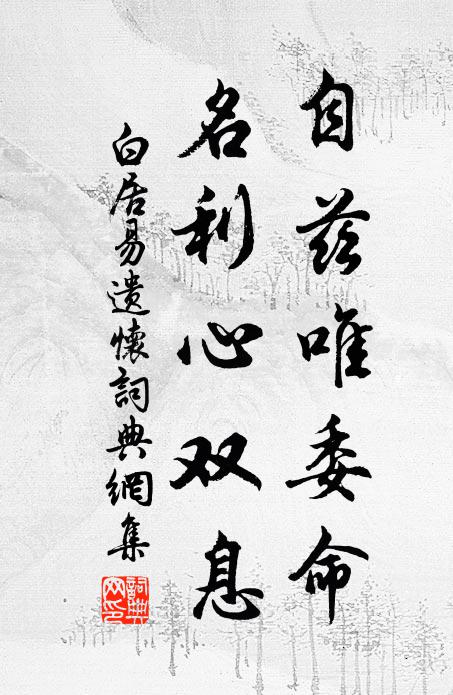 自兹唯委命
名利心双息
白居易遗怀詞典網集
詞典網印